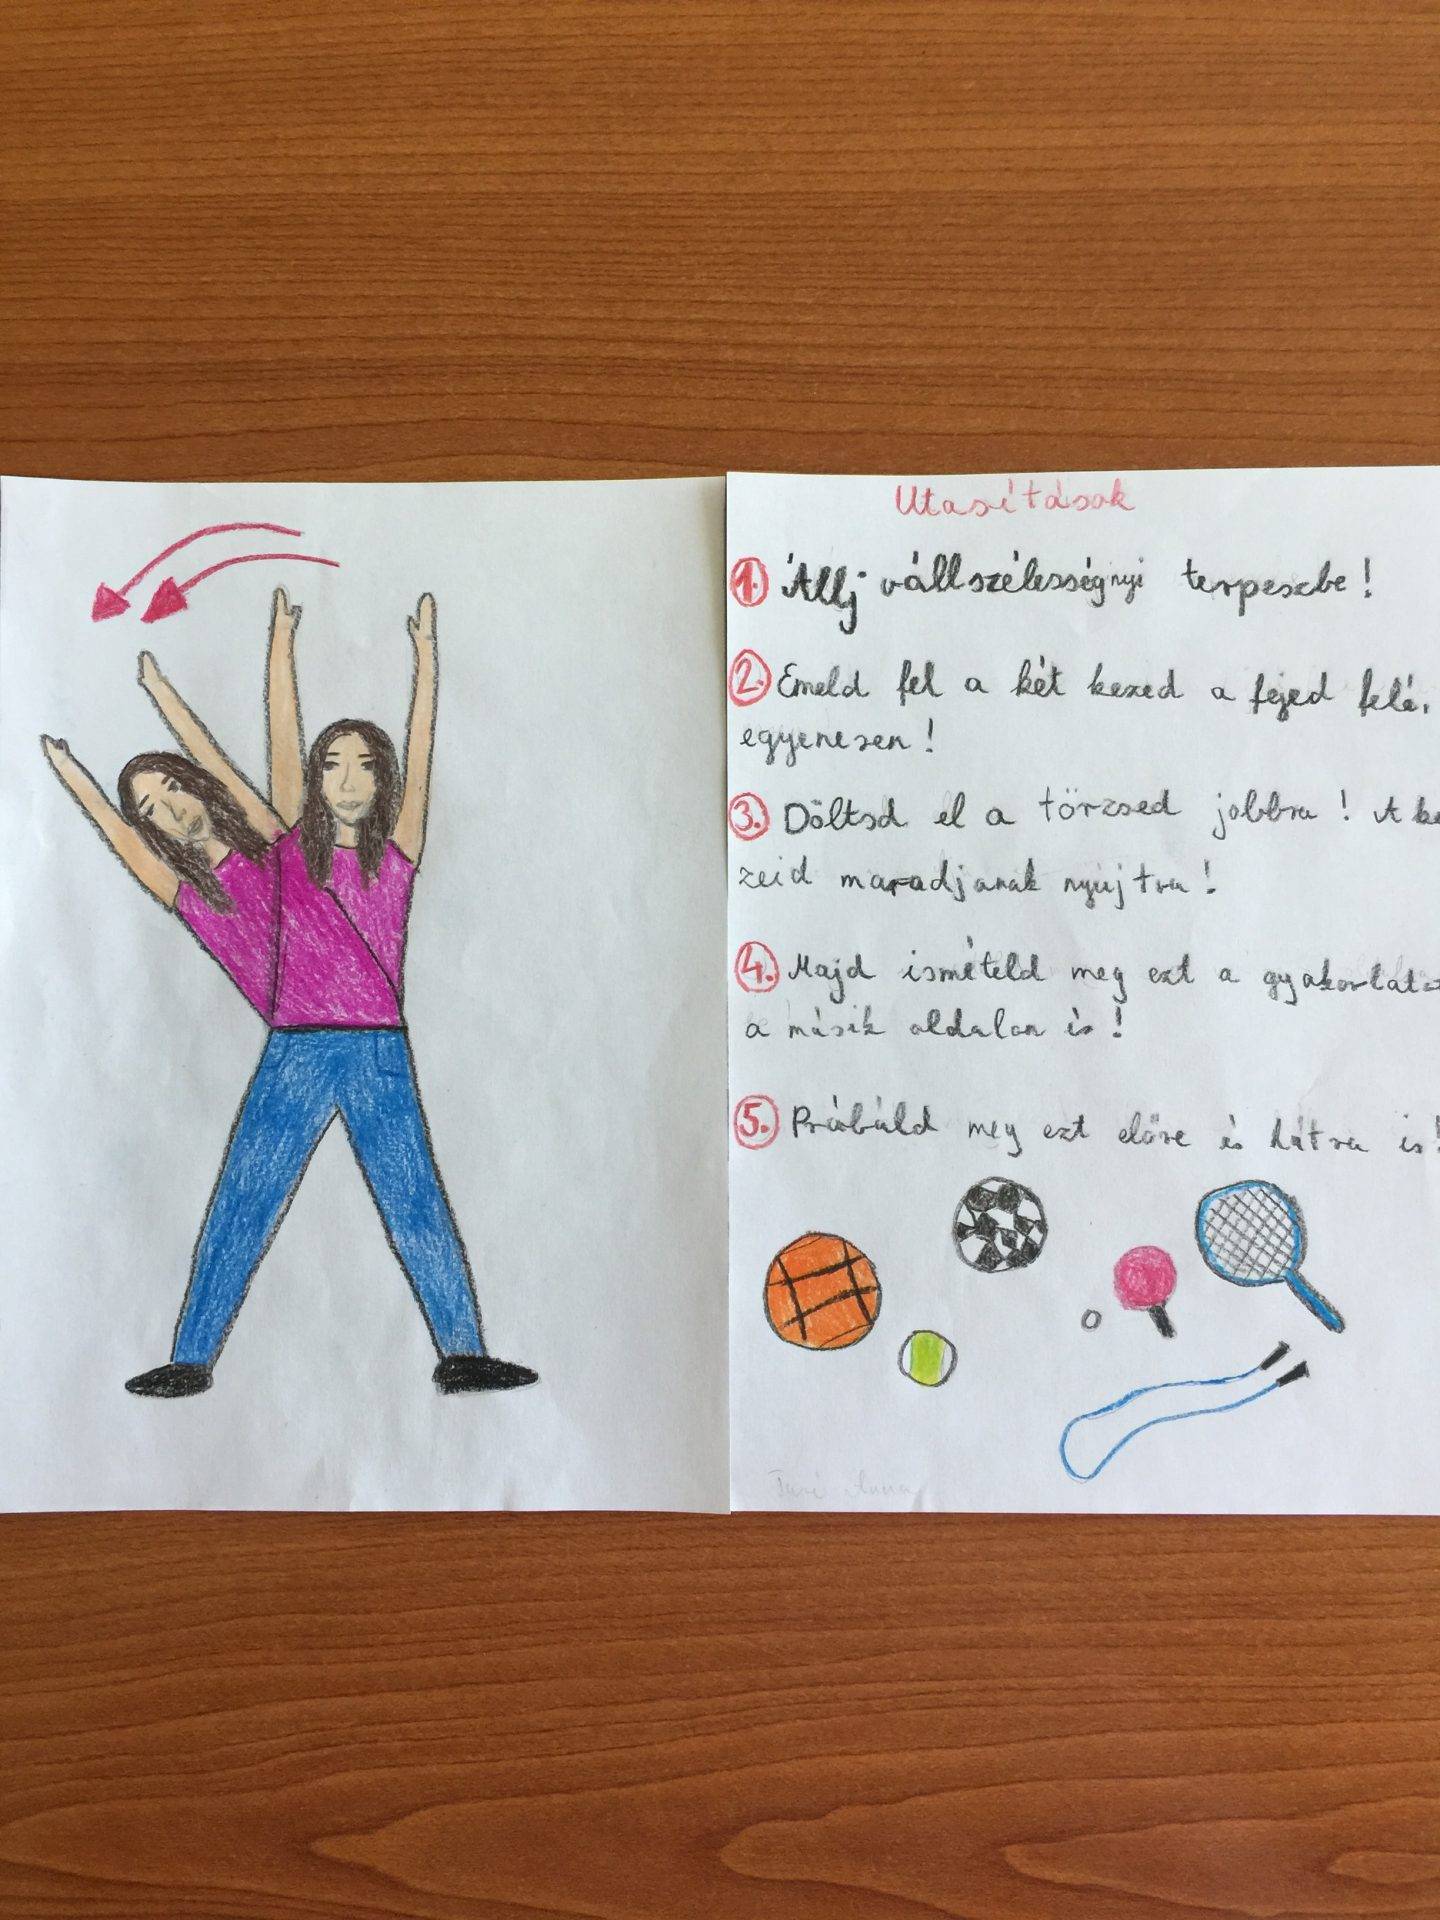 Utasítások
1. Állj vállszélességnyi terpeszbe!
2. Emeld fel a két kezed a fejed felé,
egyenesen!
3. Döltsd el a törzsed jobbra! A ke
zeid maradjanak nyújtva!
4. Majd ismételd meg ezt a gyakorlatot
a másik oldalon is!
5. Próbáld meg ezt előre és hátra is!
Anna